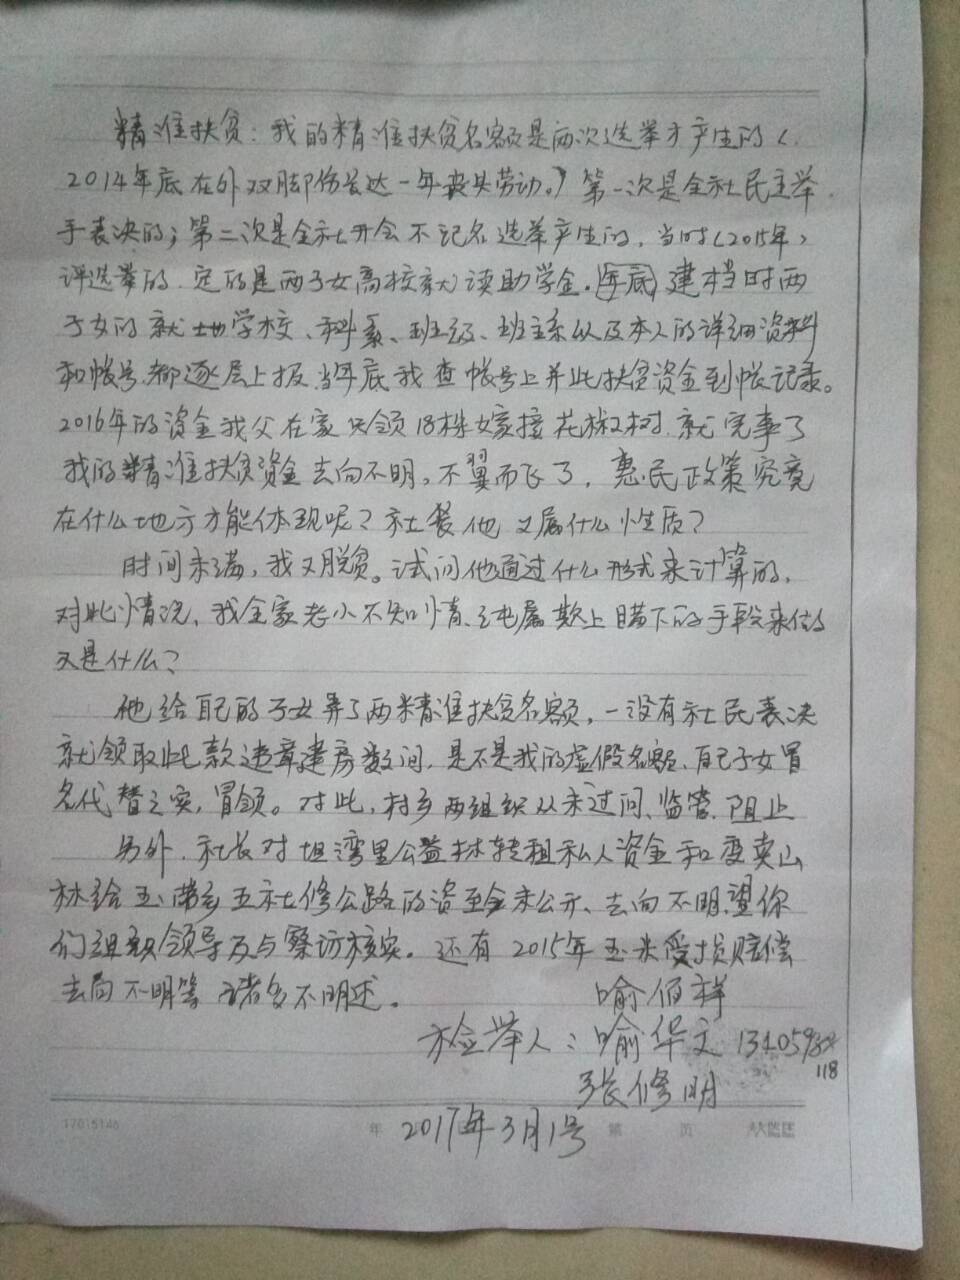 精准扶贫：我的精准扶贫名额是两次选举才产生的（
2014年底在外双脚伤长达一年丧失劳动。）第一次是全社民主举
手表决的；第二次是全社开会不记名选举产生的，当时（2015年）
评选举的，定的是两子女高校就读助学金。年底建档时两
子女的就地学校、科系、班级、班主系以及本人的详细资料
和帐号，都逐层上报，当年底我查帐号上并此扶贫资金到帐记录。
2016年的资金我父在家只领18株嫁接花椒树，就完事了
我的精准扶贫资金去向不明。不翼而飞了，惠民政策究竟
在什么地方才能体现呢？社长他又属什么性质？
时间未满，我又脱贫。试问他通过什么形式来计算的，
对此情况，我全家老小不知情、纯属欺上瞒下的手段来做
又是什么？
他给自己的子女弄了两精准扶贫名额，一没有社民表决
就领取此款违章建房数间，是不是我的虚假名额，自己子女冒
名代替之实，冒领。对此，村乡两组织从未过问、监管、阻止
另外，社长对坦湾里公益林转租私人资金和变卖山
林给玉带乡五社修公路的资金未公开、去向不明，望你
们组织领导及与察访核实。还有2015年玉米受损赔偿
去向不明等诸多不明述。
喻佰祥
检举人：喻华文
118
张修明
2017年3月1号
17015146 年 第 页